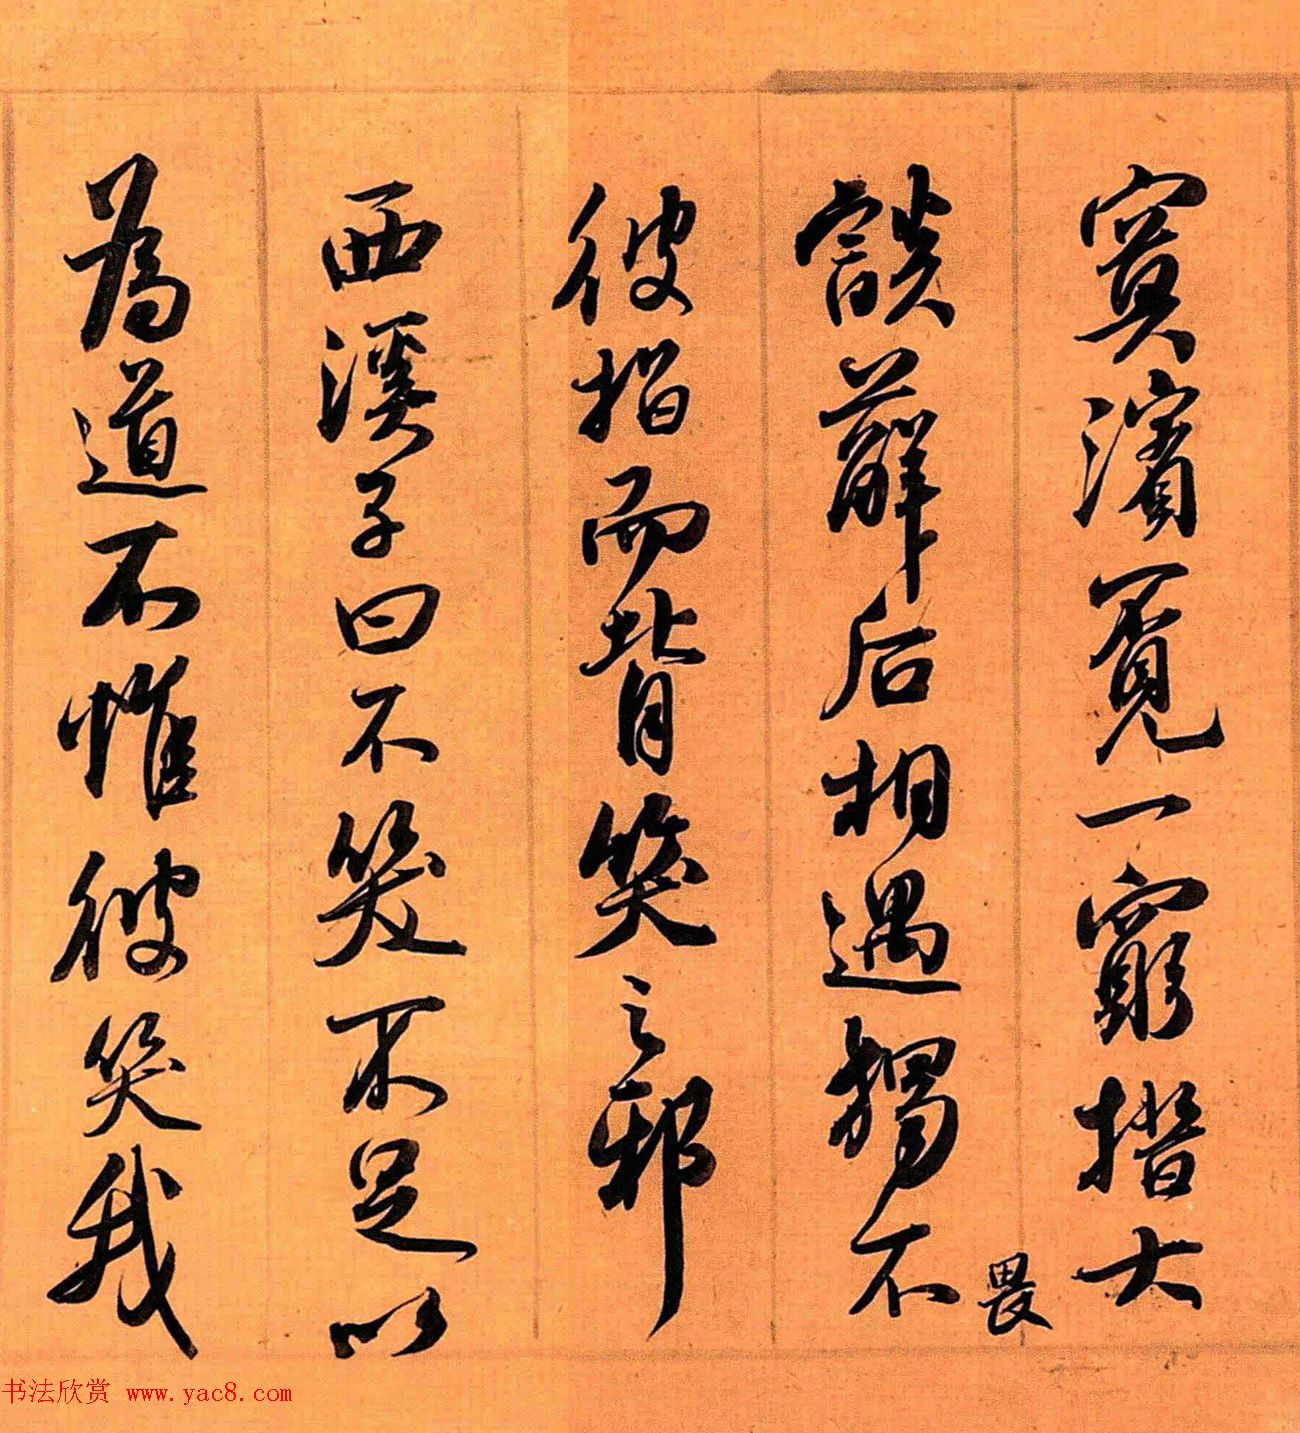 寞濱覓一窮措大
談薢后相遇獨不
畏
彼指而背笑之邪
西溪子曰不笑不足以
為道不惟彼笑我
书法欣赏 www.yac8.com